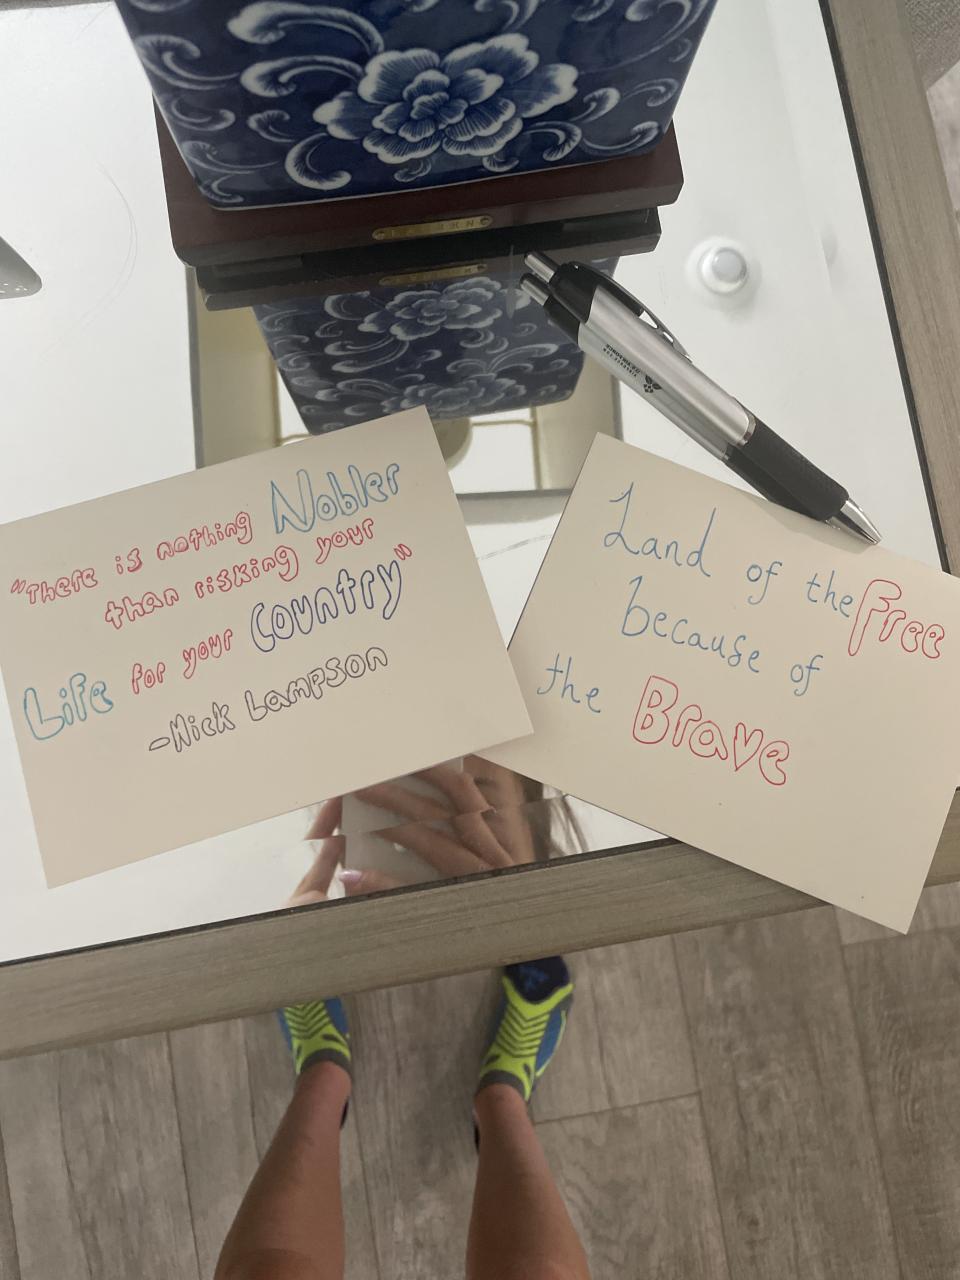 "There is nothing Nobler
than risking your
Life for your Country"
-Nick Lampson
Land of the Free
because of
the Brave